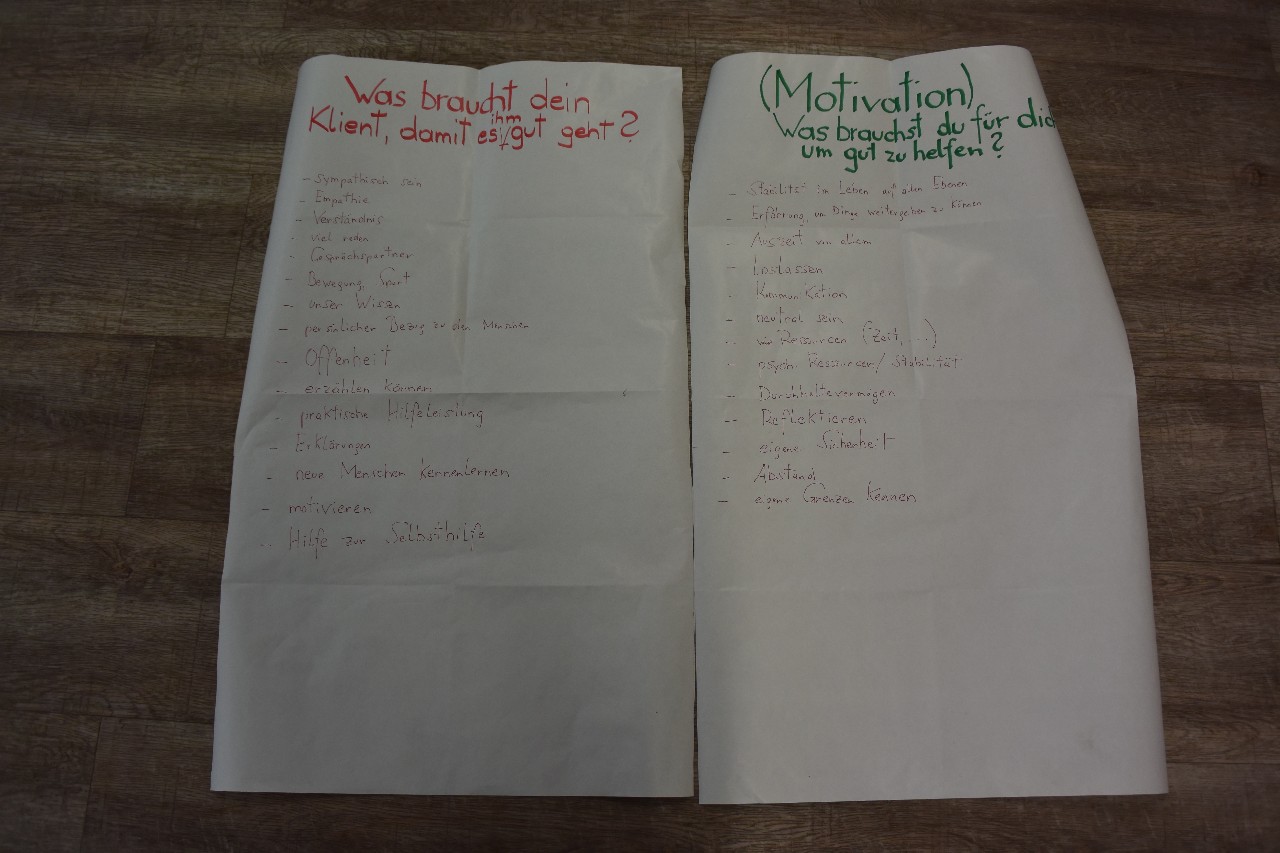 Was braucht dein
Klient, damit es ihm gut geht?
- sympathisch sein
- Empathie
- Verständnis
- viel reden
- Gesprächspartner
- Bewegung, Sport
- unser Wissen
- persönlicher Bezug zu den Menschen
- Offenheit
- erzählen können
- praktische Hilfeleistung
- Erklärungen
- neue Menschen kennenlernen
- motivieren
- Hilfe zur Selbsthilfe
(Motivation)
Was brauchst du für dich
um gut zu helfen?
- Stabilität im Leben auf allen Ebenen
- Erfahrung, um Dinge weitergeben zu können
- Auszeit von allem
- Loslassen
- Kommunikation
- neutral sein
- Ressourcen (Zeit, ...)
- psych. Ressourcen/ Stabilität
- Durchhaltevermögen
- Reflektieren
- eigene Sicherheit
- Abstand
- eigene Grenzen kennen